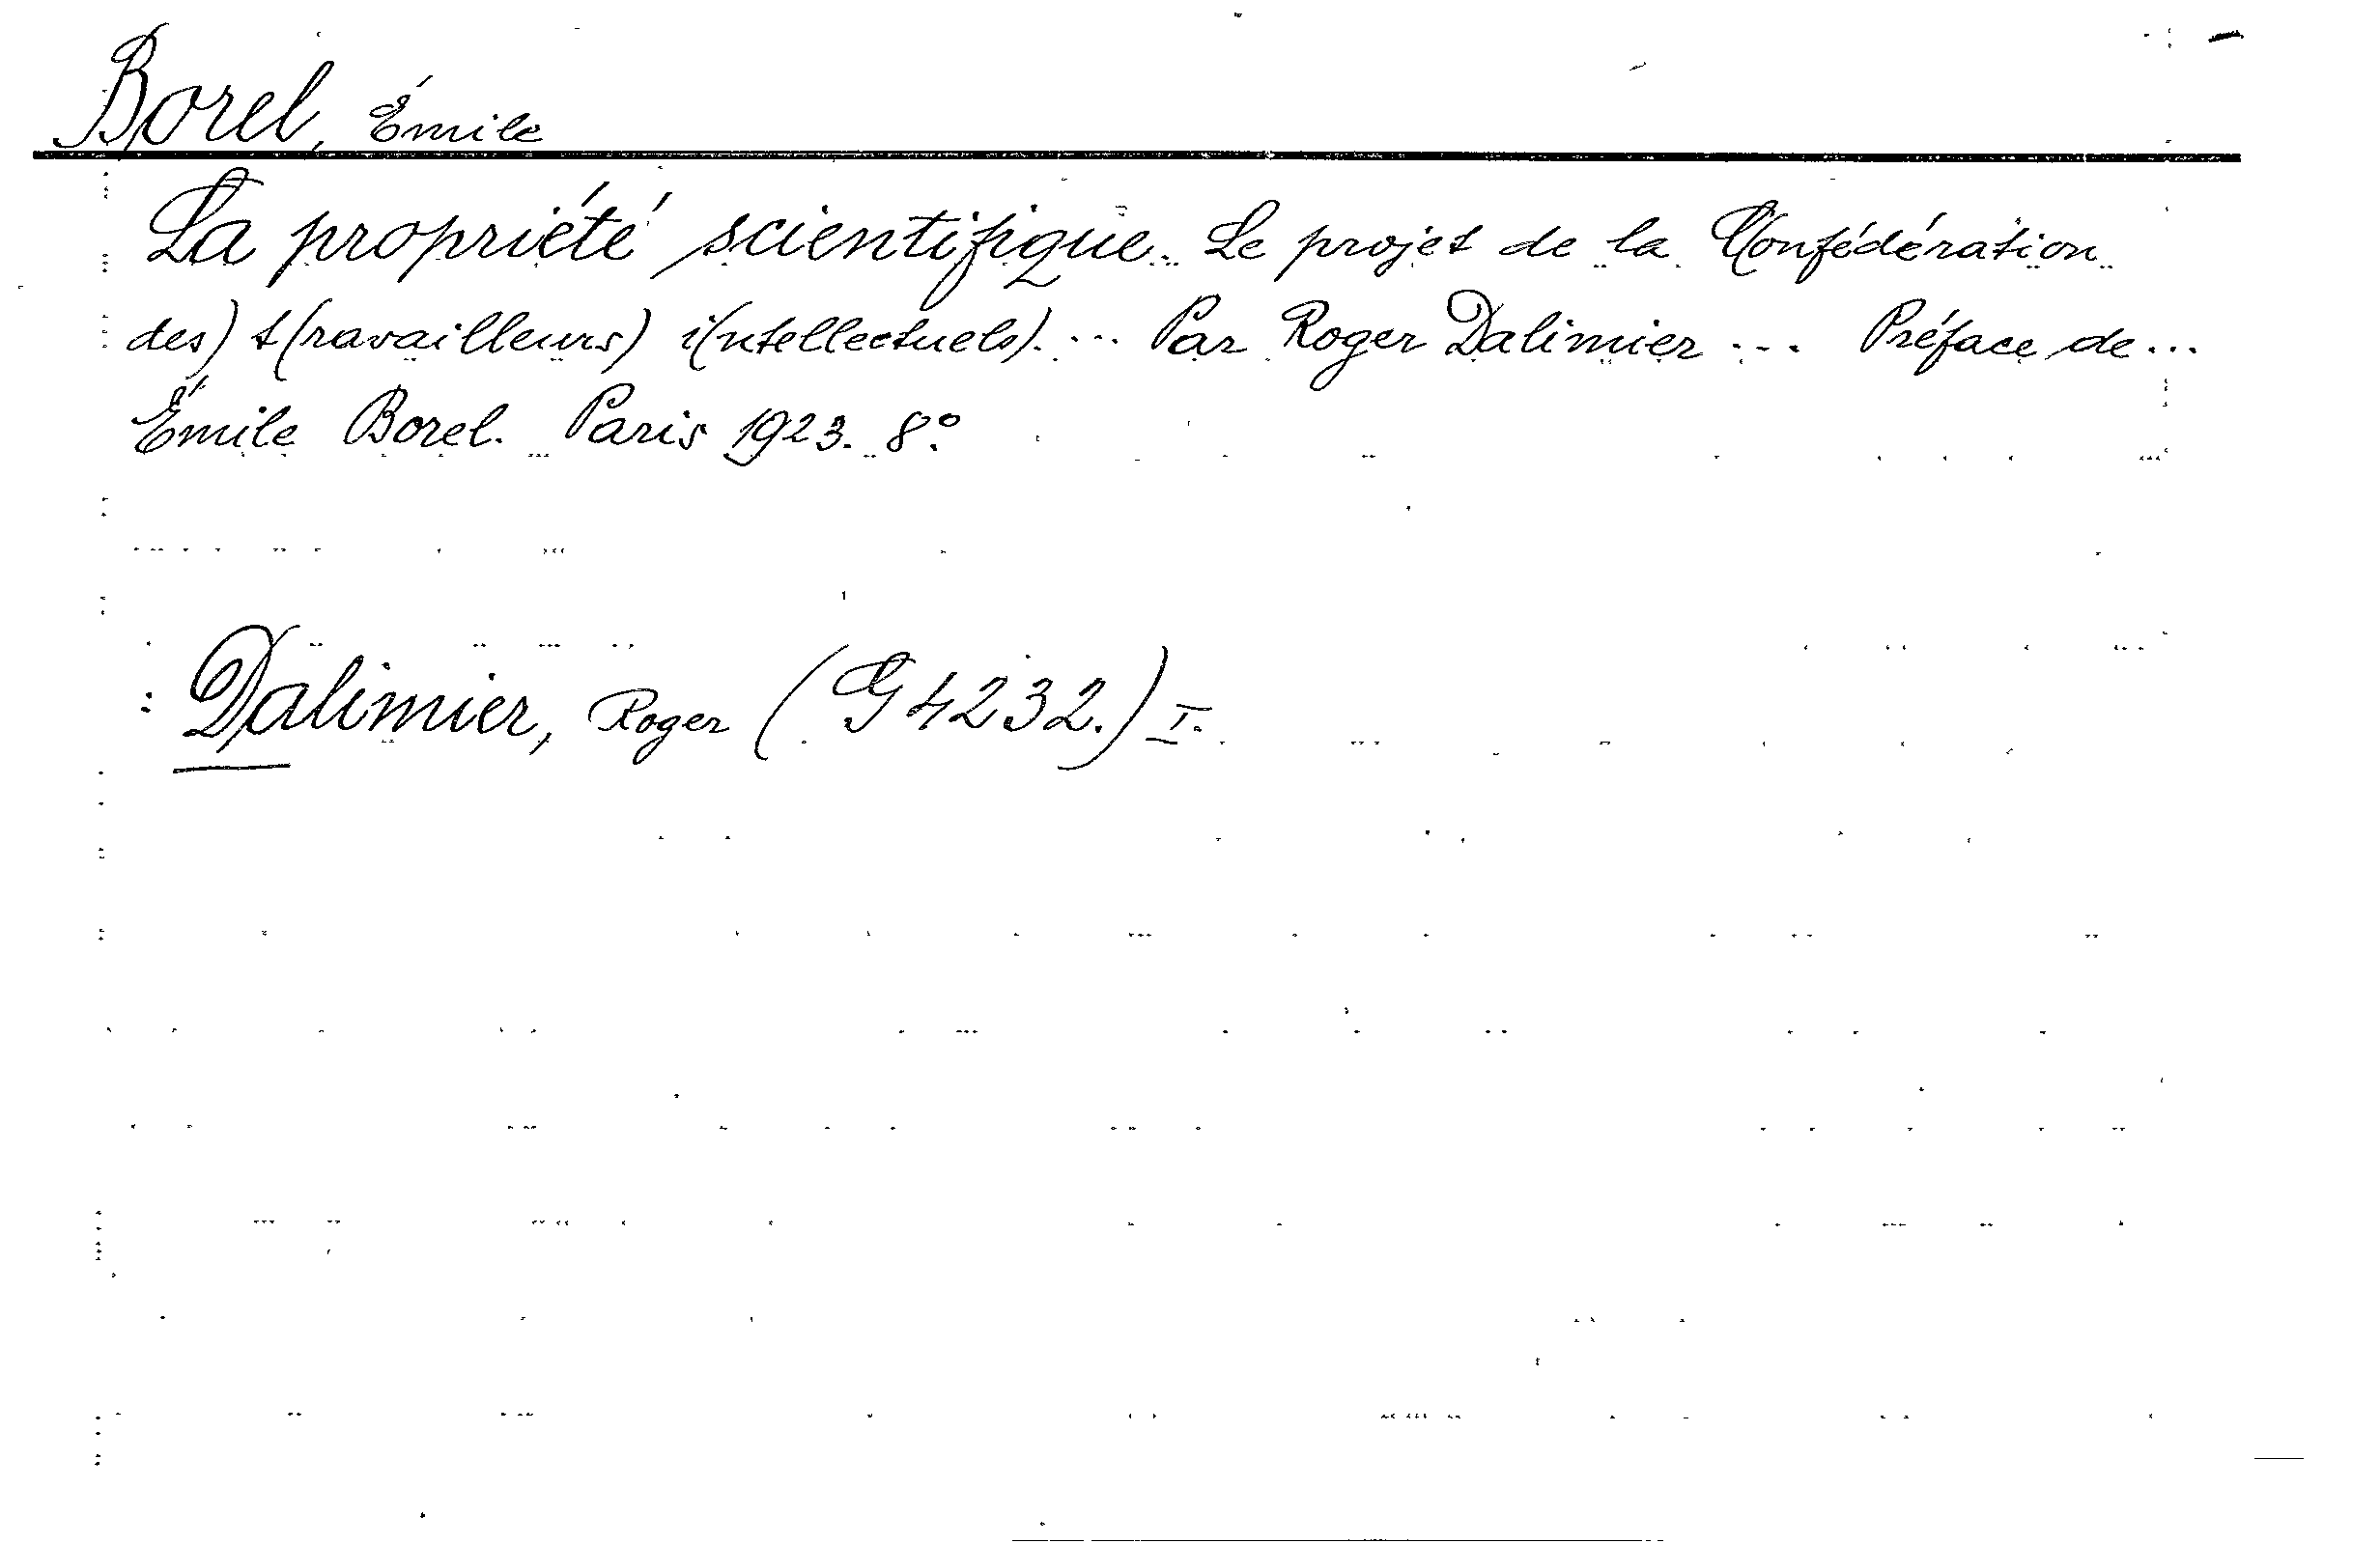 Borel, Émile
La propriété scientifique. Le projet de la C(onfédération
des) t(ravailleurs) i(ntellectuels). ... Par Roger Dalimier ... Préface de ...
Émile Borel. Paris 1923. 8°.
: Dalimier, Roger (G 4232.) I.